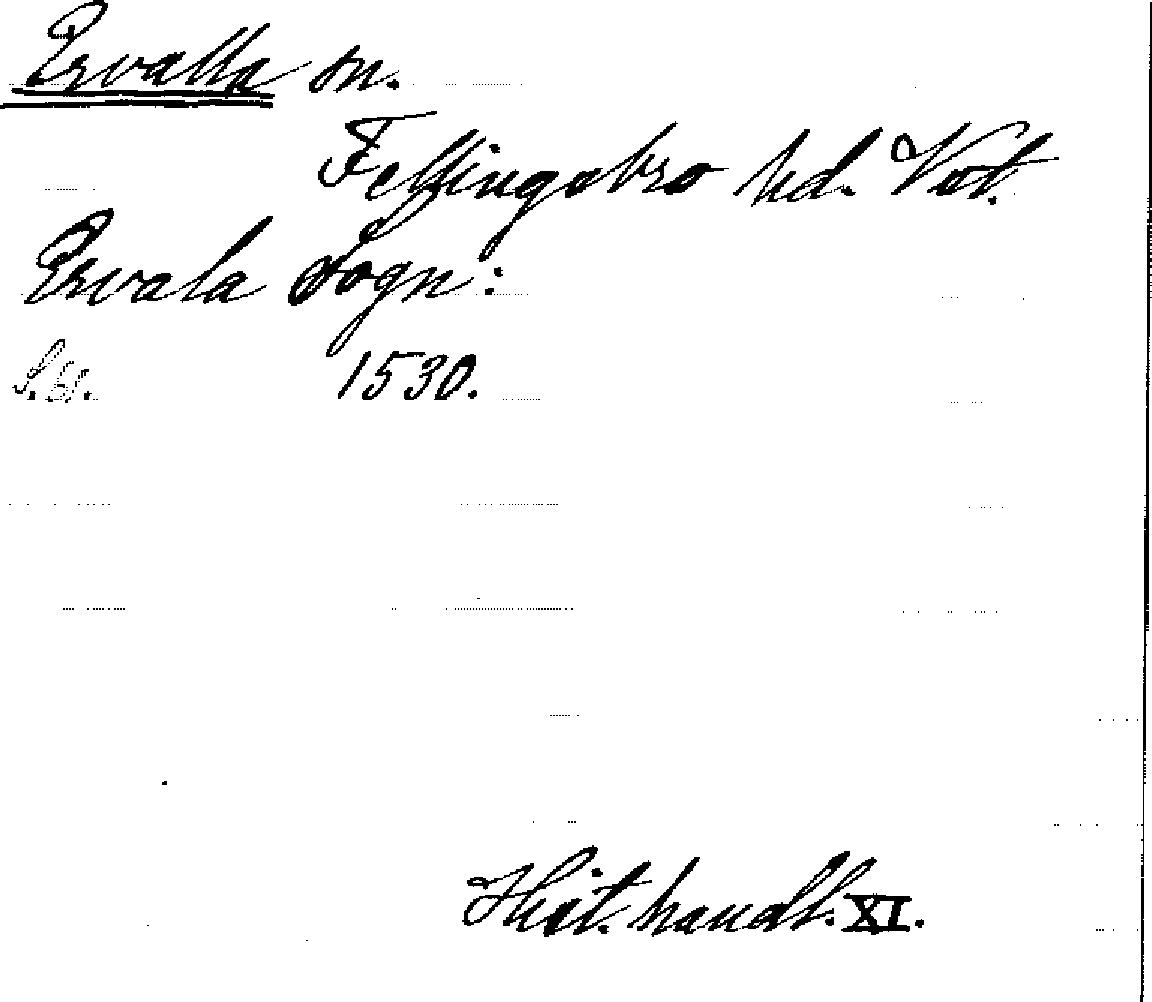 Ervalla sn.
Fellingsbro hd. Vstm.
Ervala sogn:
S. 61. 1530.
Hist. handl. XI.